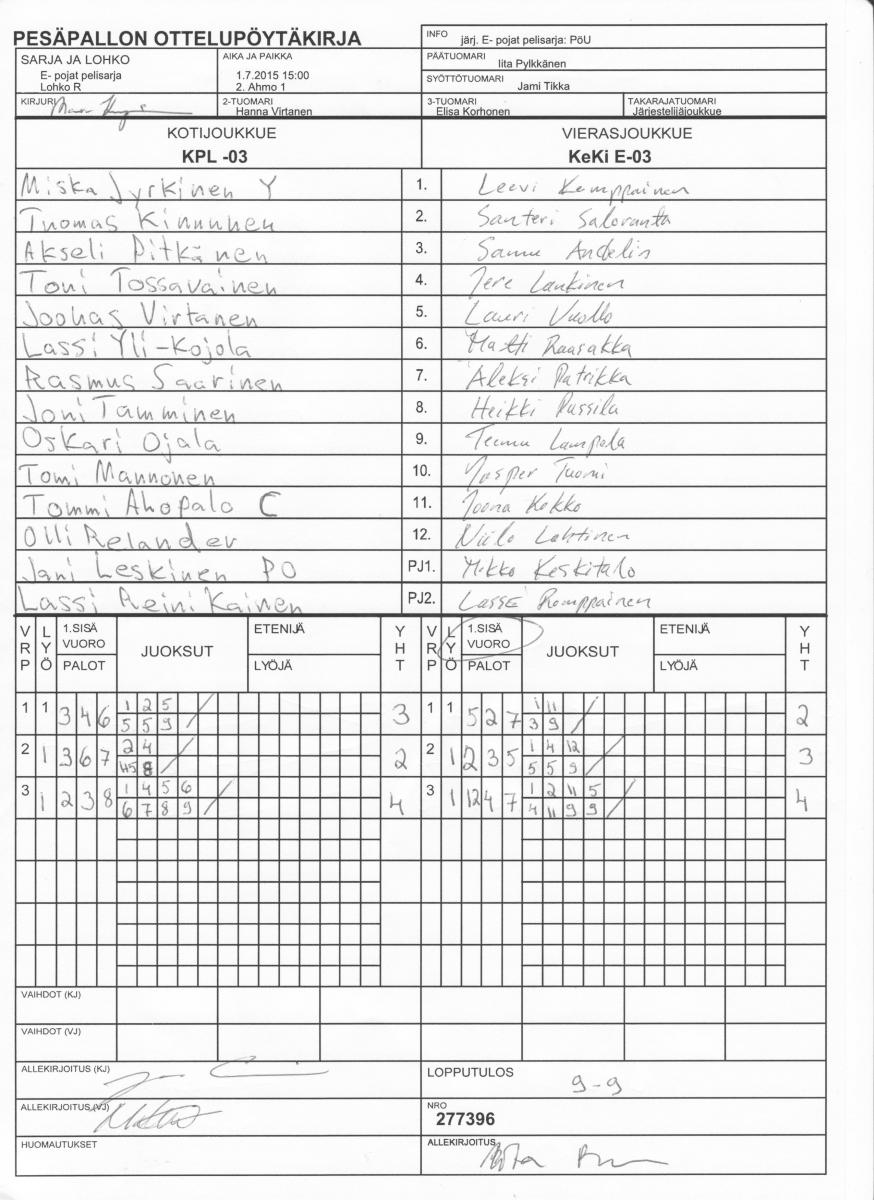 PESÄPALLON OTTELUPÖYTÄKIRJA
INFO järj. E- pojat pelisarja: PöU
SARJA JA LOHKO
E- pojat pelisarja
Lohko R
AIKA JA PAIKKA
1.7.2015 15:00
2. Ahmo 1
PÄÄTUOMARI
Iita Pylkkänen
SYÖTTÖTUOMARI
Jami Tikka
KIRJURI
2-TUOMARI
Hanna Virtanen
3-TUOMARI
Elisa Korhonen
TAKARAJATUOMARI
Järjestelijäjoukkue
KOTIJOUKKUE
KPL -03
VIERASJOUKKUE
KeKi E-03
Miska Jyrkinen Y 1. Leevi Kemppainen
Tuomas Kinnunen 2. Santeri Saloranta
Akseli Pitkänen 3. Samu Andelin
Toni Tossavainen 4. Jere Laukinen
Joonas Virtanen 5. Lauri Vuollo
Lassi Yli-Kojola 6. Matti Raasakka
Rasmus Saarinen 7. Aleksi Patrikka
Joni Tamminen 8. Heikki Passila
Oskari Ojala 9. Teemu Lampela
Tomi Mannonen 10. Jasper Tuomi
Tommi Ahopalo C 11. Joona Kokko
Olli Relander 12. Niilo Lahtinen
Jani Leskinen PO PJ1. Mikko Keskitalo
Lassi Reinikainen PJ2. Lasse Romppainen
VRP LYÖ 1.SISÄ VUORO PALOT JUOKSUT ETENIJÄ LYÖJÄ YHT VRP LYÖ 1.SISÄ VUORO PALOT JUOKSUT ETENIJÄ LYÖJÄ YHT
1 1 3 4 6 1 2 5 / 3 1 1 5 2 7 1 11 / 2
5 5 9 3 9
2 1 3 6 7 2 4 / 2 2 1 2 3 5 1 4 12 / 3
8 5 5 9
3 1 2 3 8 1 4 5 6 / 4 3 1 12 4 7 1 2 11 5 / 4
6 7 8 9 4 11 9 9
VAIHDOT (KJ)
VAIHDOT (VJ)
ALLEKIRJOITUS (KJ)
LOPPUTULOS 9-9
ALLEKIRJOITUS (VJ)
NRO
277396
HUOMAUTUKSET
ALLEKIRJOITUS